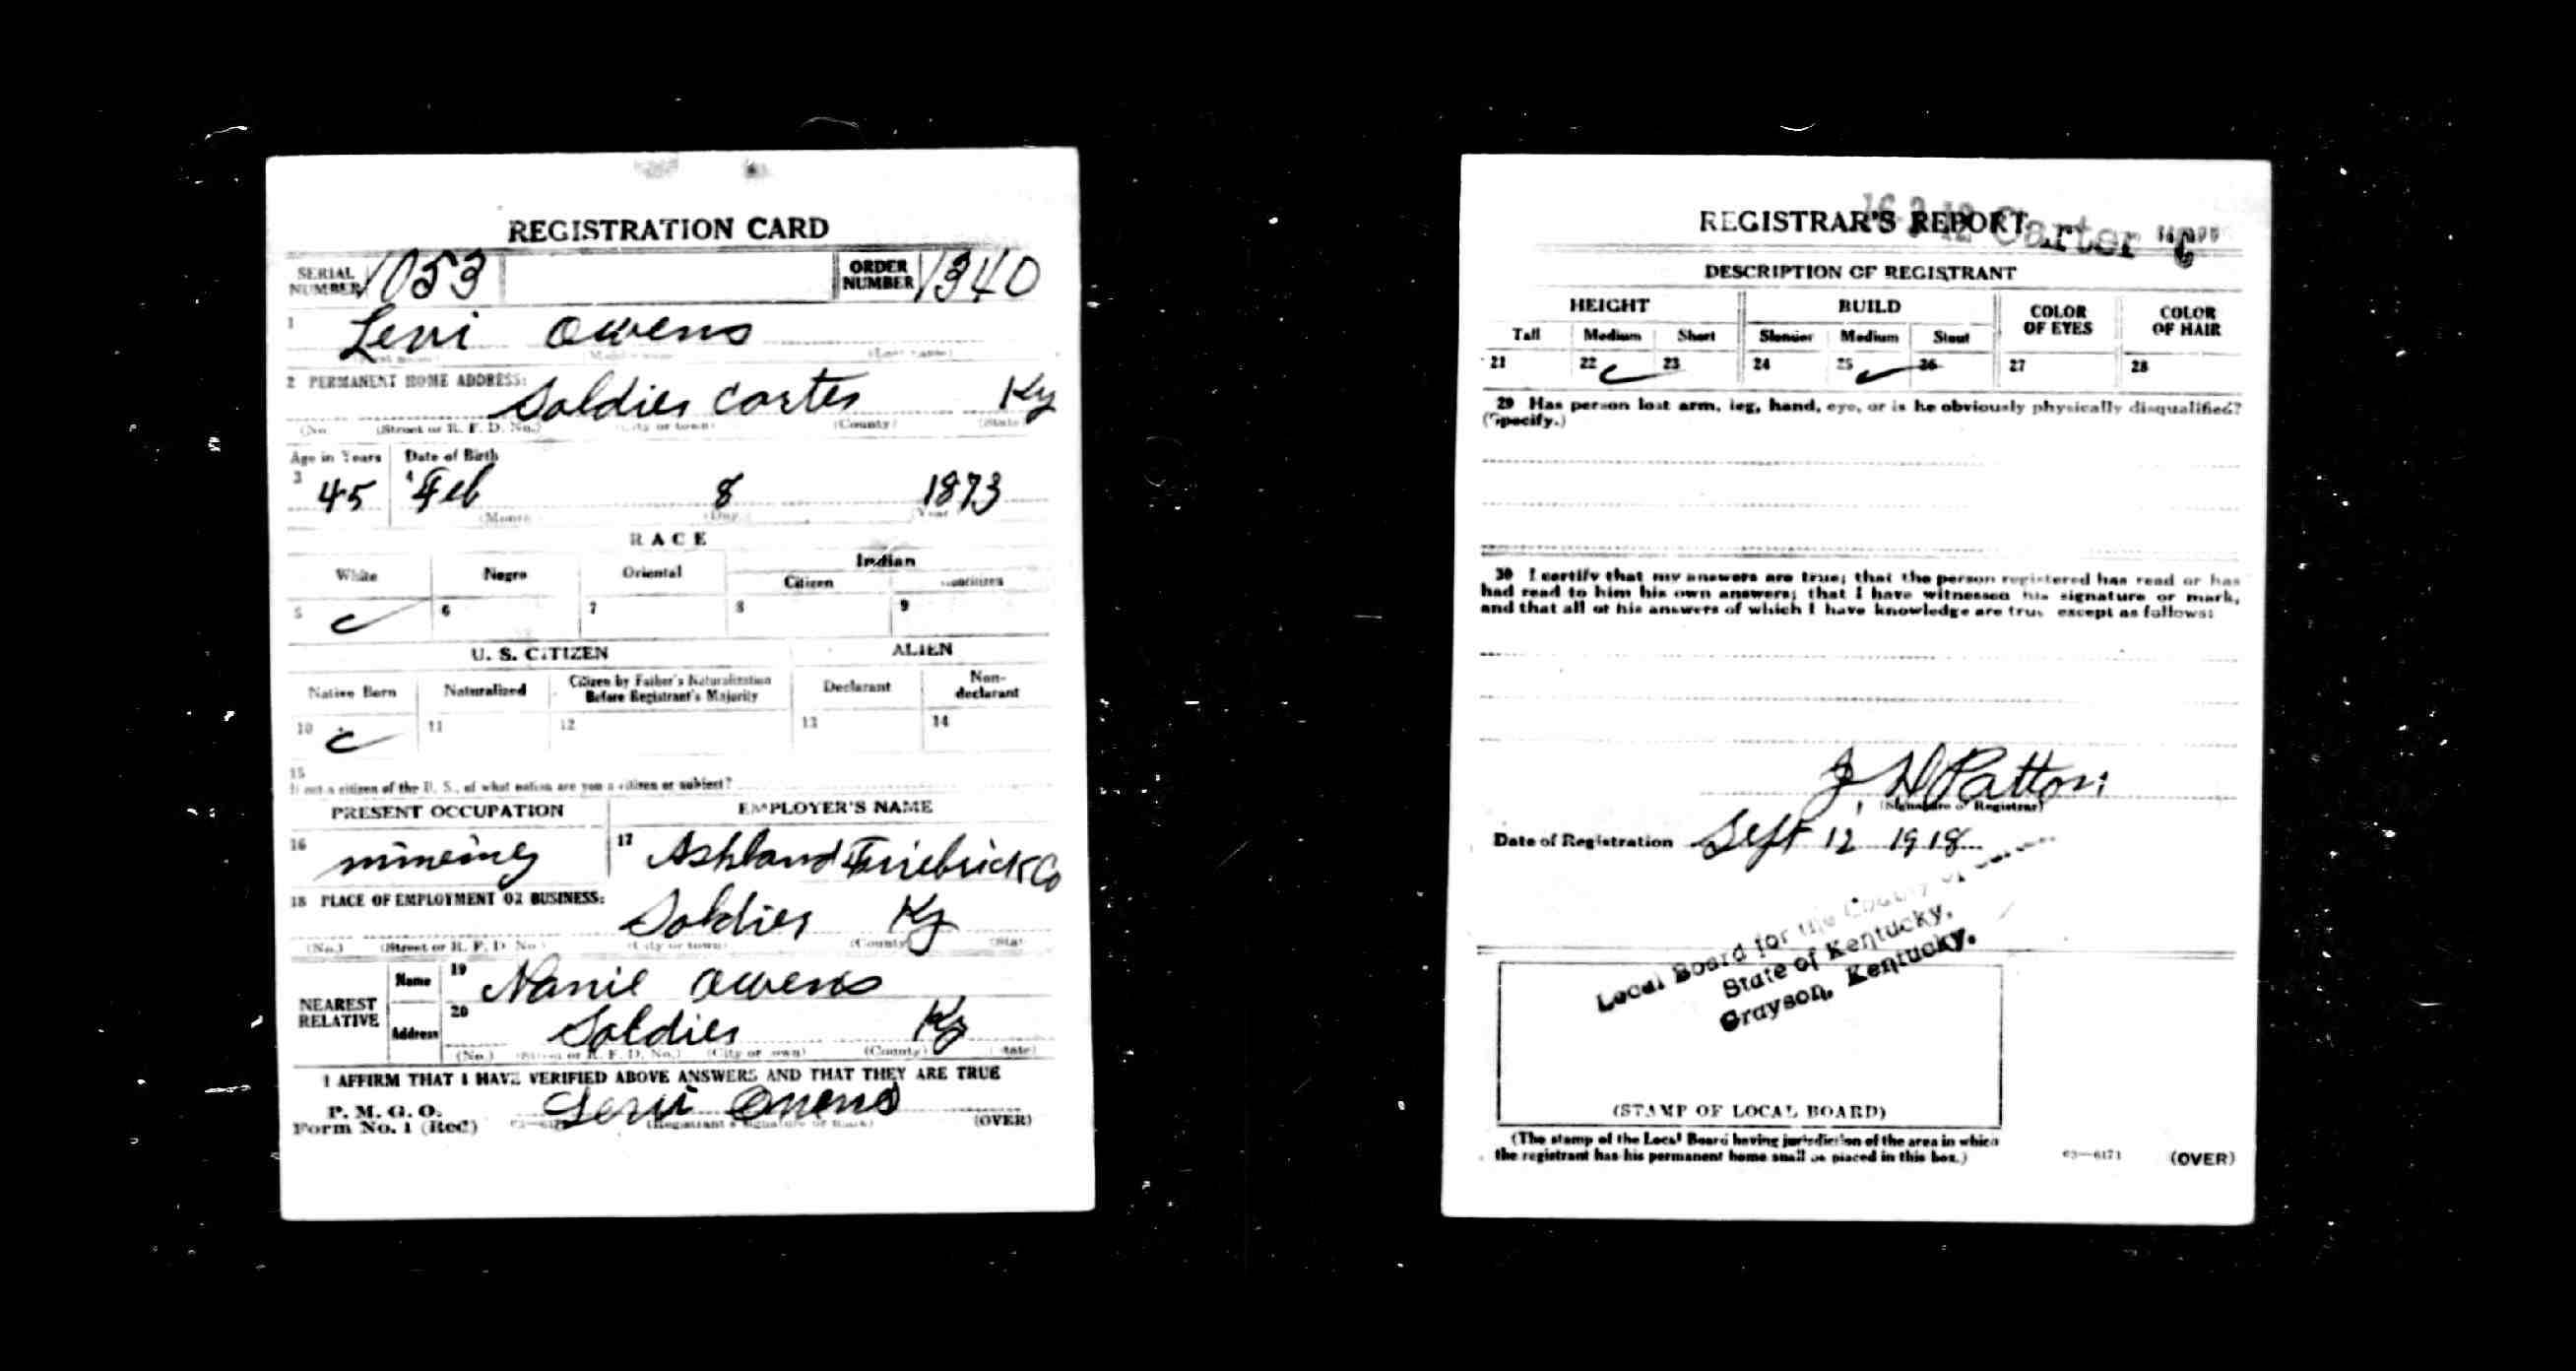 REGISTRATION CARD
SERIAL NUMBER 1053 ORDER NUMBER 1340
1 Levi Owens
(Last name)
2 PERMANENT HOME ADDRESS:
Soldier Carter Ky
(No. (Street or R. F. D. No.) (City or town) (County) (State)
Age in Years Date of Birth
3 45 4 Feb 8 1873
(Month) (Day) (Year)
RACE
White Negro Oriental Indian
Citizen Noncitizen
5 6 7 8 9
U. S. CITIZEN ALIEN
Native Born Naturalized Citizen by Father's Naturalization Before Registrant's Majority Declarant Non-declarant
10 11 12 13 14
15
If not a citizen of the U. S., of what nation are you a citizen or subject?
PRESENT OCCUPATION EMPLOYER'S NAME
16 mineing 17 Ashland Friebrick Co
18 PLACE OF EMPLOYMENT OR BUSINESS:
Soldier Ky
(No.) (Street or R. F. D. No.) (City or town) (County) (State
NEAREST RELATIVE
Name 19 Nanie Owens
Address 20 Soldier Ky
(No.) (Street or R. F. D. No.) (City or town) (County) (State)
I AFFIRM THAT I HAVE VERIFIED ABOVE ANSWERS AND THAT THEY ARE TRUE
P. M. G. O.
Form No. 1 (Red) Levi Owens
(Registrant's signature or mark) (OVER)
REGISTRAR'S REPORT
Carter C
DESCRIPTION OF REGISTRANT
HEIGHT BUILD COLOR OF EYES COLOR OF HAIR
Tall Medium Short Slender Medium Stout
21 22 23 24 25 26 27 28
29 Has person lost arm, leg, hand, eye, or is he obviously physically disqualified?
(Specify.)
30 I certify that my answers are true; that the person registered has read or has
had read to him his own answers; that I have witnessed his signature or mark,
and that all of his answers of which I have knowledge are true except as follows:
J H Patton
(Signature of Registrar)
Date of Registration Sept 12 1918
Local Board for the County of
State of Kentucky,
Grayson, Kentucky.
(STAMP OF LOCAL BOARD)
(The stamp of the Local Board having jurisdiction of the area in which
the registrant has his permanent home shall be placed in this box.)
03—6171 (OVER)